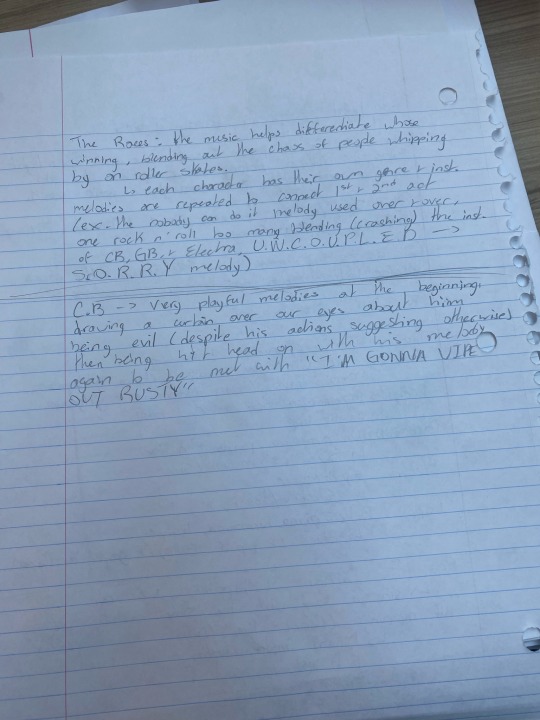 The Races: the music helps differentiate whose
winning, blending out the chaos of people whipping
by on roller skates.
↳ each character has their own genre + inst.
melodies are repeated to connect 1st + 2nd act
(ex. the nobody can do it melody used over + over,
one rock n' roll too many blending (crashing) the inst.
of CB, GB, + Electra U.N.C.O.U.P.L.E.D →
S.O.R.R.Y melody)
C.B → Very playful melodies at the beginning,
drawing a curtain over our eyes about him
being evil (despite his actions suggesting otherwise)
then being hit head on with his melody
again to be met with "I'M GONNA WIPE
OUT RUSTY"